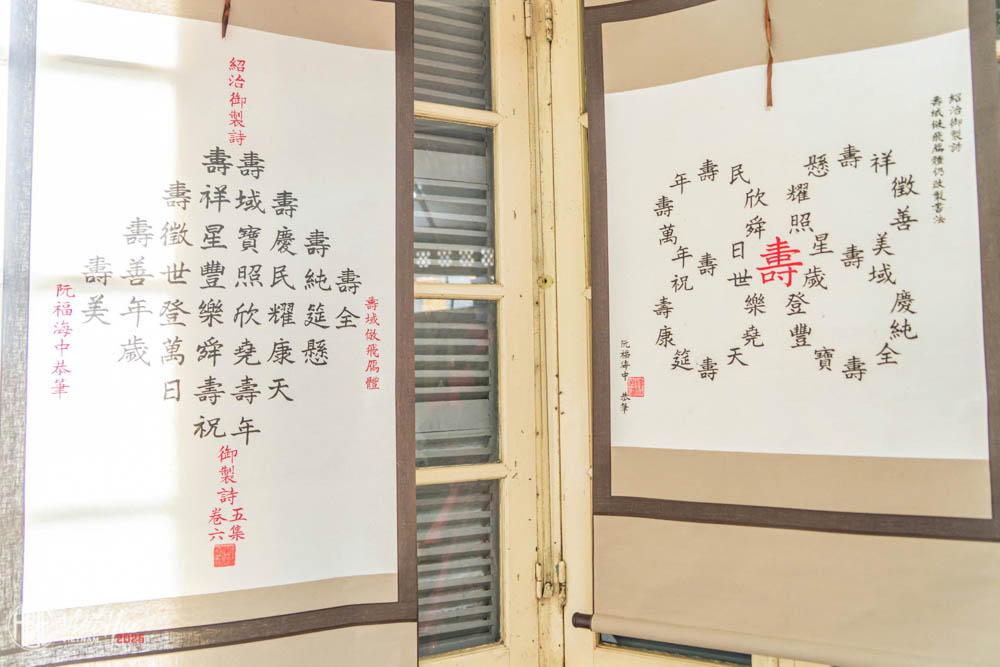 紹治御製詩
壽域倣飛鴈體
壽全
壽純筵懸
壽慶民耀康天
壽域寶照欣堯壽年
壽祥星豐樂舜壽祝
壽徵世登萬日
壽善年歲
壽美
御製詩
五集
卷六
阮福海中恭筆
紹治御製詩
壽域倣飛鴈體仍改製書法
壽
懸壽祥徵善美壽域慶純全壽寶豐登歲星照耀
民欣舜日世樂堯天壽筵康壽祝年壽萬壽年壽
阮福海中 恭筆
VIETNAM 2025